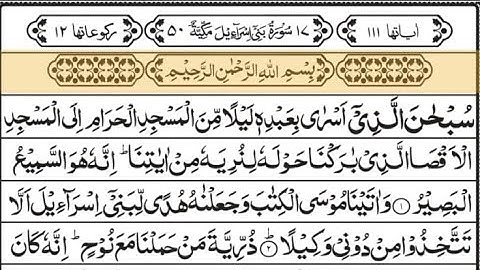 اٰیاتہا ۱۱۱ ۱۷ سُوْرَۃُ بَنِیْۤ اِسْرَآءِیْلَ مَکِّیَّۃٌ ۵۰ رکوعاتہا ۱۲
بِسْمِ اللّٰہِ الرَّحْمٰنِ الرَّحِیْمِ
سُبْحٰنَ الَّذِیْۤ اَسْرٰی بِعَبْدِہٖ لَیْلًا مِّنَ الْمَسْجِدِ الْحَرَامِ اِلَی الْمَسْجِدِ
الْاَقْصَا الَّذِیْ بٰرَکْنَا حَوْلَہٗ لِنُرِیَہٗ مِنْ اٰیٰتِنَا ؕ اِنَّہٗ ہُوَ السَّمِیْعُ
الْبَصِیْرُ ﴿۱﴾ وَاٰتَیْنَا مُوْسَی الْکِتٰبَ وَجَعَلْنٰہُ ہُدًی لِّبَنِیْۤ اِسْرَآءِیْلَ اَلَّا
تَتَّخِذُوْا مِنْ دُوْنِیْ وَکِیْلًا ﴿۲﴾ؕ ذُرِّیَّۃَ مَنْ حَمَلْنَا مَعَ نُوْحٍ ؕ اِنَّہٗ کَانَ